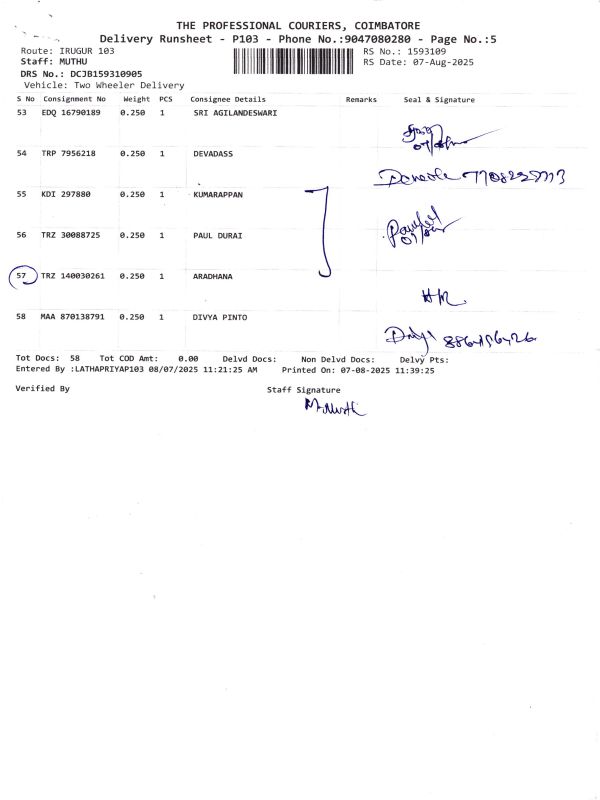 THE PROFESSIONAL COURIERS, COIMBATORE
Delivery Runsheet - P103 - Phone No.:9047080280 - Page No.:5
Route: IRUGUR 103 RS No.: 1593109
Staff: MUTHU RS Date: 07-Aug-2025
DRS No.: DCJB159310905
Vehicle: Two Wheeler Delivery
S No Consignment No Weight PCS Consignee Details Remarks Seal & Signature
53 EDQ 16790189 0.250 1 SRI AGILANDESWARI
54 TRP 7956218 0.250 1 DEVADASS
55 KDI 297880 0.250 1 KUMARAPPAN
56 TRZ 30088725 0.250 1 PAUL DURAI
57 TRZ 140030261 0.250 1 ARADHANA
58 MAA 870138791 0.250 1 DIVYA PINTO
Tot Docs: 58 Tot COD Amt: 0.00 Delvd Docs: Non Delvd Docs: Delvy Pts:
Entered By :LATHAPRIYAP103 08/07/2025 11:21:25 AM Printed On: 07-08-2025 11:39:25
Verified By Staff Signature